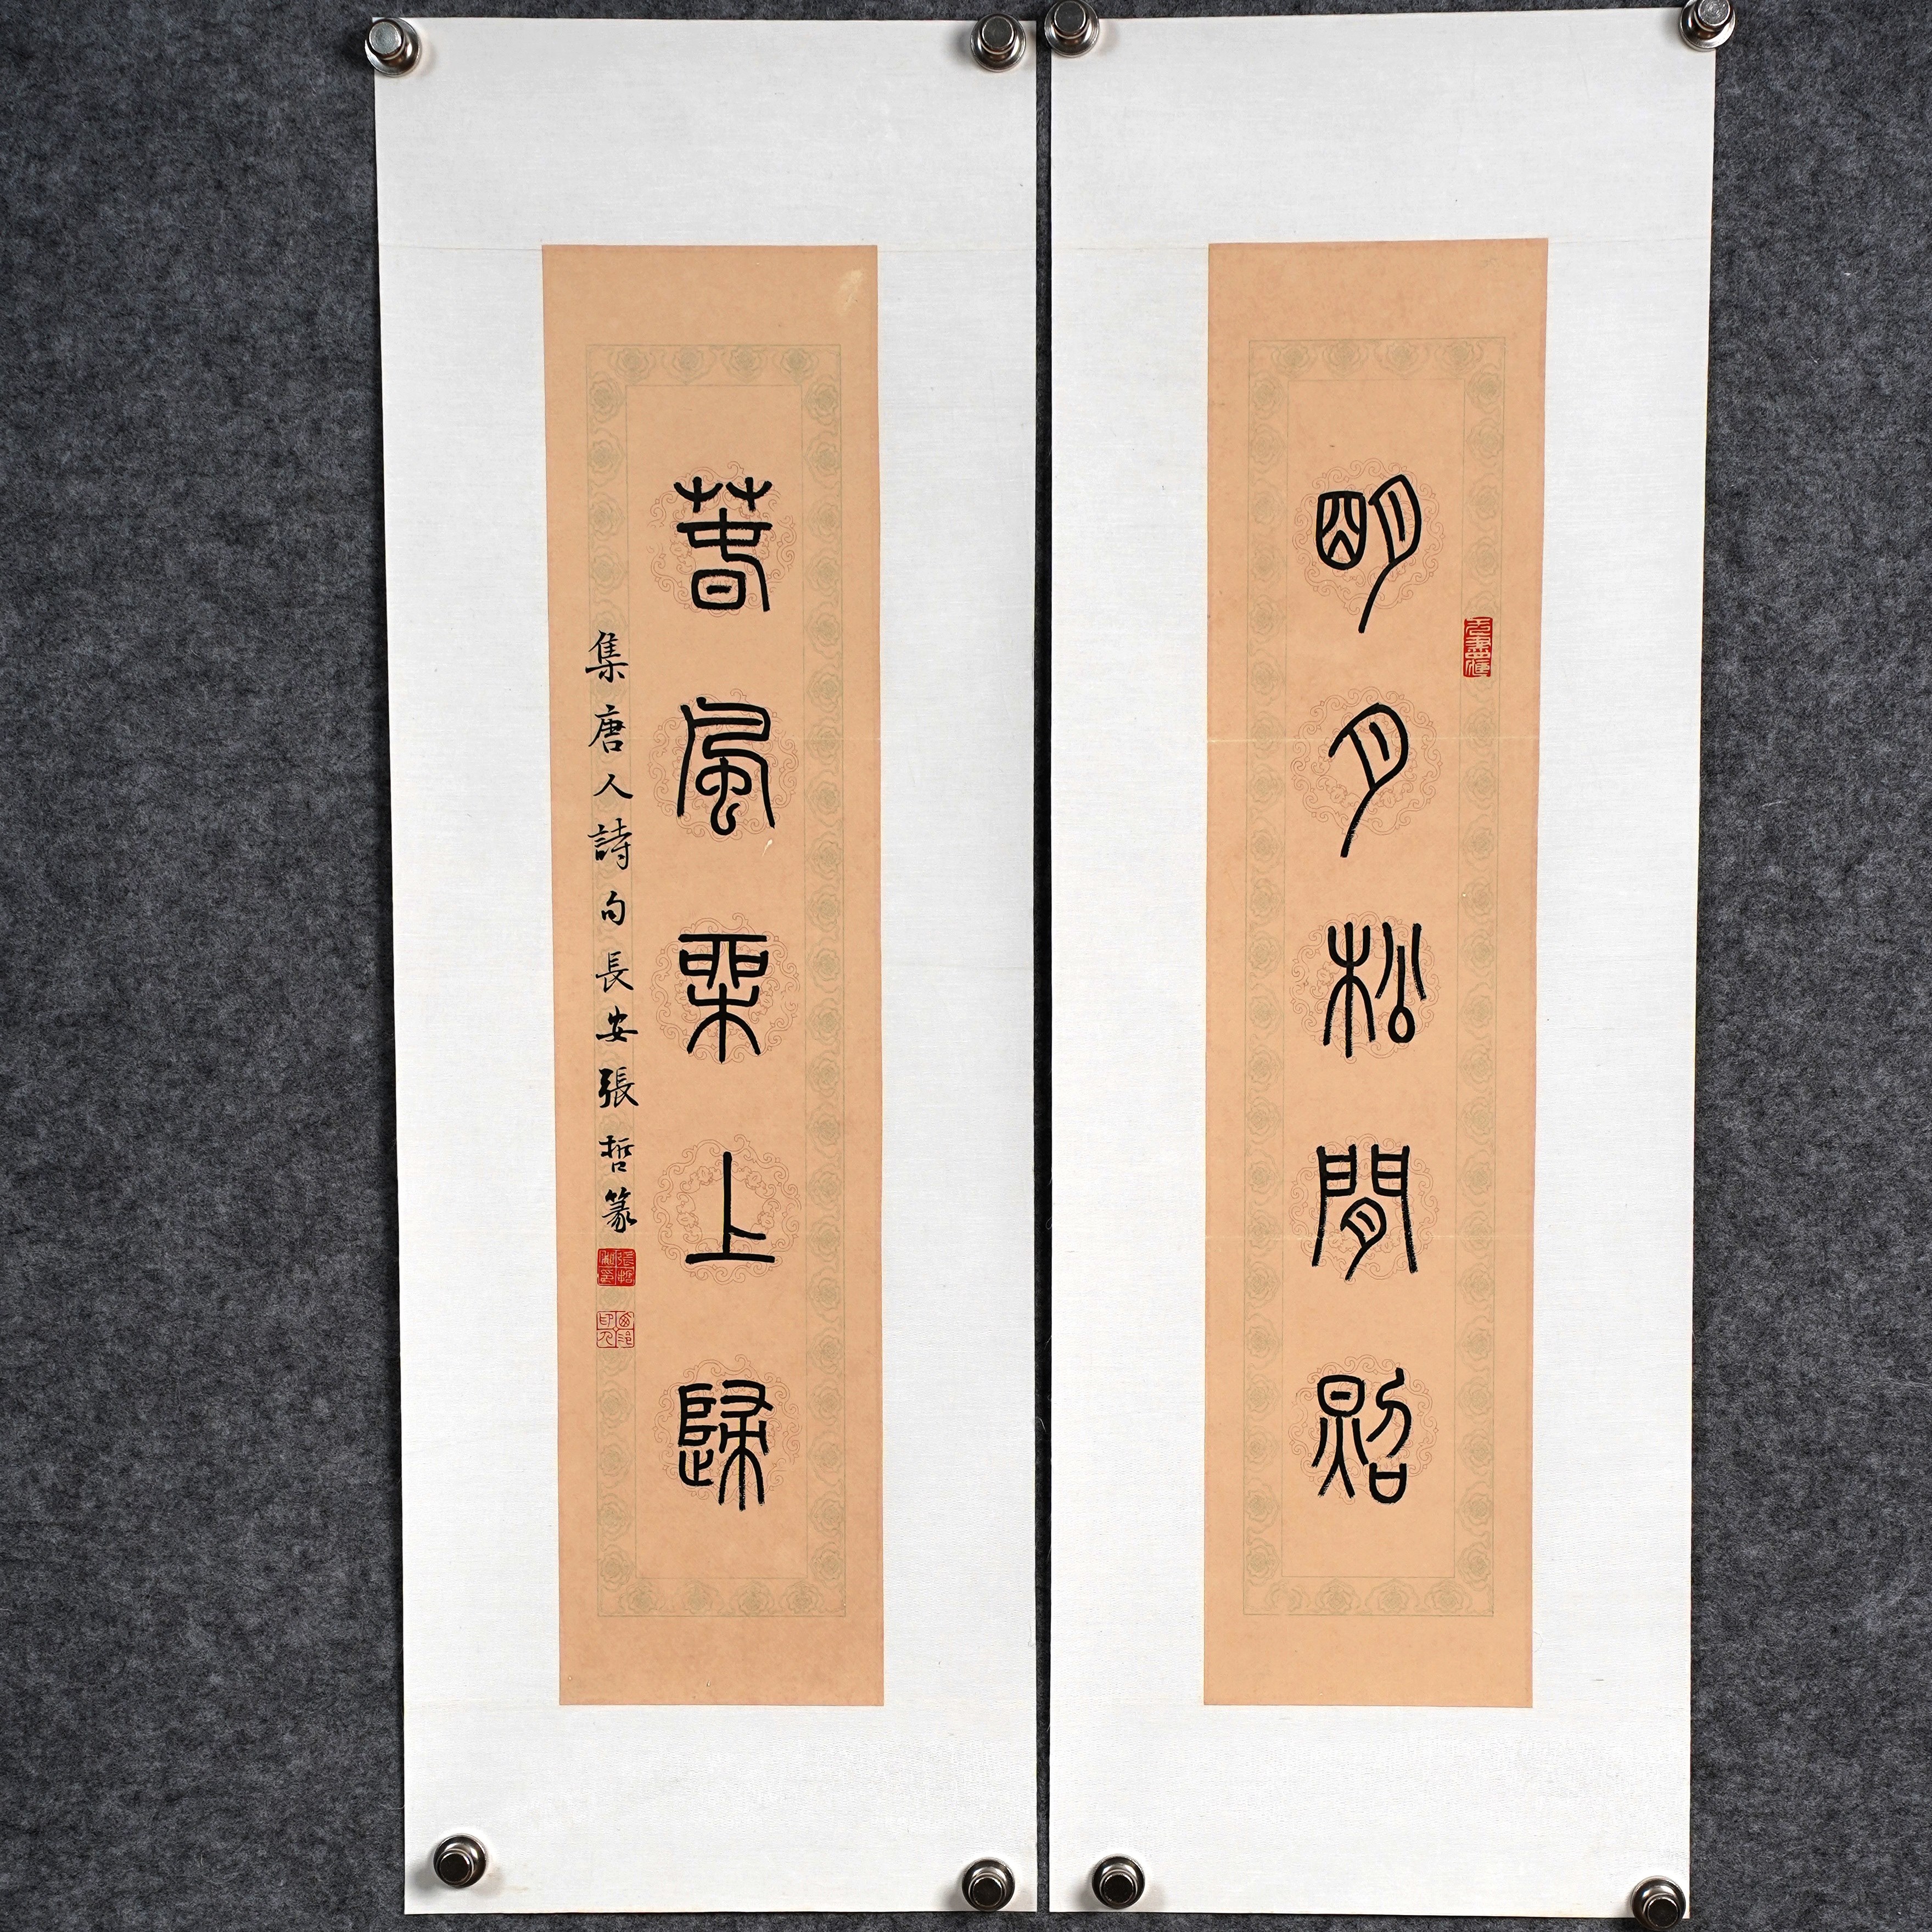 明月松間照
春風柳上歸
集唐人詩句長安張哲篆